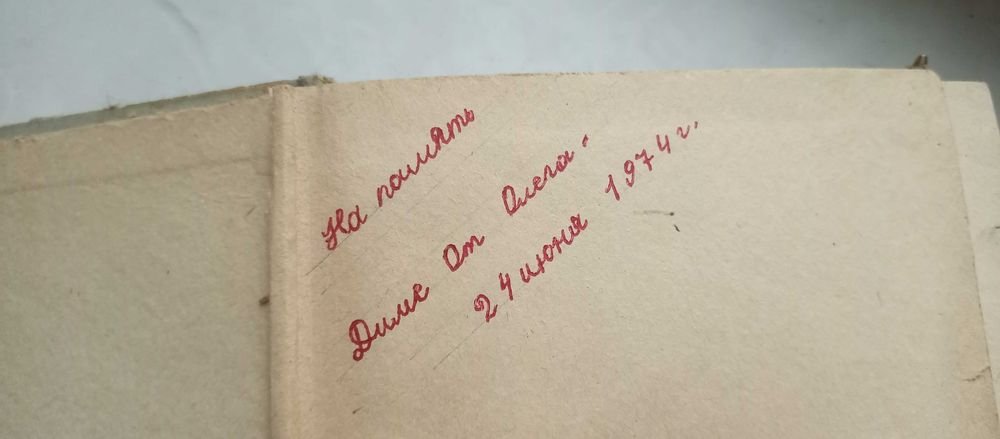 На память
Диме От Олега.
24 июня 1974 г.